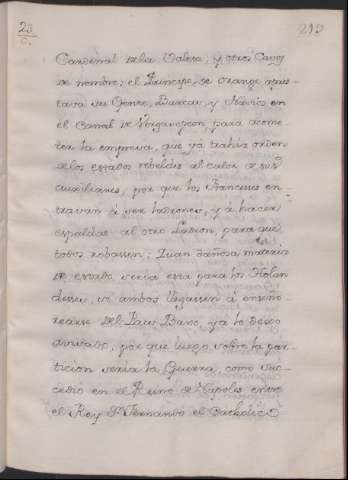 23
213
Cardenal de la Valeta, y otros Cavos
de nombre; el Principe, de Orange apres-
tava su Gente, Barcas, y Navios en
el Canal de Vergaopzoon para acome-
ter la empresa, que yá trahia orden
de los estados rebeldes al calor de sus
auxiliares, por que los Franceses en-
travan á ser ladrones, y á hacer
espaldas al otro Ladron, para que
todos robassen; Quan dañosa materia
de estado seria esta para los Holan
deses, si ambos llegassen á enseño-
rearse del Pais Baxo, yá lo
por que luego sobre la par-
ticion seria la Guerra, como suc-
cedio en el Reino de Napoles entre
el Rey Dn Fernando el Catholico